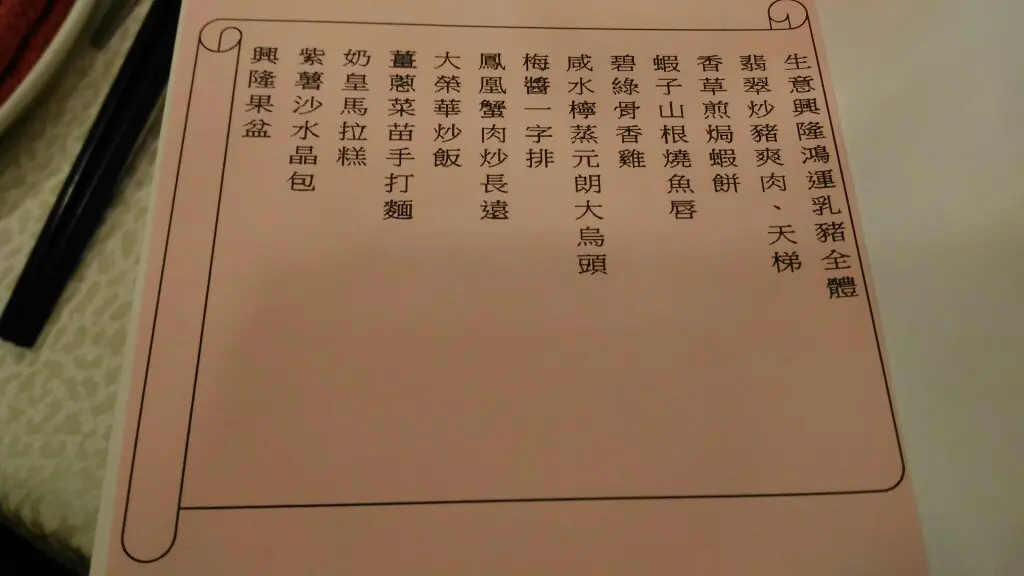 生意興隆鴻運乳豬全體
翡翠炒豬爽肉、天梯
香草煎焗蝦餅
蝦子山根燒魚唇
碧綠骨香雞
咸水檸蒸元朗大烏頭
梅醬一字排
鳳凰蟹肉炒長遠
大榮華炒飯
薑蔥菜苗手打麵
奶皇馬拉糕
紫薯沙水晶包
興隆果盆